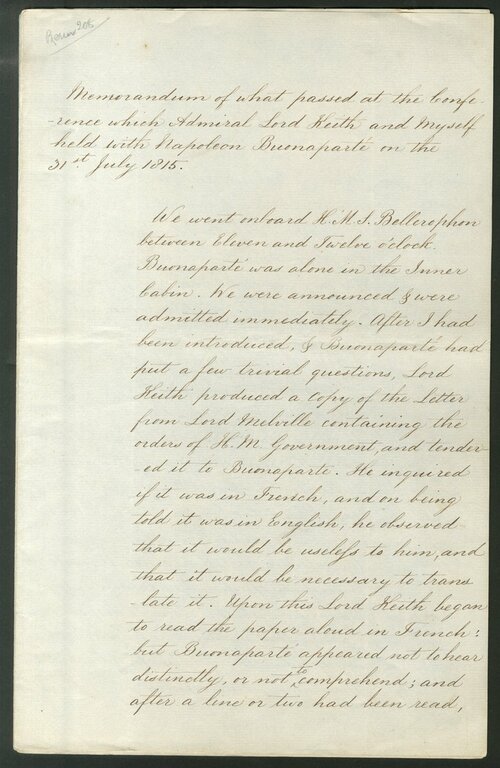 Memorandum of what passed at the Confe-
-rence which Admiral Lord Keith and Myself
held with Napoleon Buonaparté on the
31st July 1815.
We went onboard H.M.S. Bellerophon
between Eleven and Twelve o'clock.
Buonaparté was alone in the Inner
Cabin. We were announced & were
admitted immediately. After I had
been introduced, & Buonaparté had
put a few trivial questions, Lord
Keith produced a Copy of the Letter
from Lord Melville containing the
orders of H.M. Government, and tender-
-ed it to Buonaparte. He inquired
if it was in French, and on being
told it was in English, he observed
that it would be useless to him, and
that it would be necessary to trans
-late it. Upon this Lord Keith began
to read the paper aloud in French;
but Buonaparté appeared not to hear
distinctly, or not to comprehend; and
after a line or two had been read,